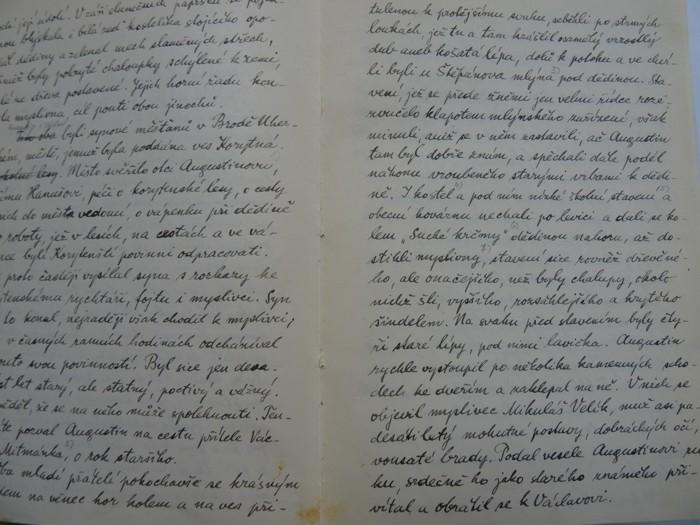 dědí její údolí. V záři slunečních paprsků se
nou blýskala i bílá zeď kostelíka stojícího opo-
dědiny a zelenal mech slaměných střech,
nimiž byly pokryté chaloupky schýlené k zemi,
ze dřeva postavené. Jejich horní řadu kon-
la myslivna, cíl pouti obou jinochů.
oba byli synové měšťanů v Brodě Uher-
ském, městě, jemuž byla poddána ves Korytná.
lesy. Město svěřilo otci Augustinovu,
Hanušovi, péči o korytenské lesy, o cesty
nich do města vedoucí, o vápenku při dědině
roboty, jež v lesích, na cestách a ve vá-
ce byli Korytenští povinni odpracovati.
proto častěji vysílal syna s rozkazy ke
korytenskému rychtáři, fojtu i myslivci. Syn
to konal, nejraději však chodil k myslivci,
v časných ranních hodinách odcházíval
svou povinností. Byl sice jen deva-
let starý, ale statný, poctivý a vážný.
věděl, že se na něho může spolehnouti. Ten-
pozval Augustin na cestu přítele Vác-
Mitmánka, o rok staršího.
Oba mladí přátelé pokochavše se krásným
na věnec hor kolem a na ves při-
tulenou k protějšímu svahu, seběhli po strmých
loukách, jež tu a tam krášlil osamělý vzrostlý
dub aneb košatá lípa, dolů k potoku a ve chví-
li byli u Štěpánova mlýna pod dědinou. Sta-
vení, jež se přede žněmi jen velmi řídce rozé-
zvučelo klapotem mlýnského zařízení, však
minuli, aniž se v něm zastavili, ač Augustin
tam byl dobře znám, a spěchali dále podél
náhonu vroubeného starými vrbami k dědi-
ně. I kostel a pod ním nízké školní stavení a
obecní kovárnu nechali po levici a dali se ko-
lem „Suché krčmy" dědinou nahoru, až do-
stihli myslivny, stavení sice rovněž dřevěné-
ho, ale onačejšího, než byly chalupy, okolo
nichž šli, vyššího, rozsáhlejšího a krytého
šindelem. Na svahu před stavením byly čty-
ři staré lípy, pod nimi lavička. Augustin
rychle vystoupil po několika kamenných scho-
dech ke dveřím a zaklepal na ně. V nich se
objevil myslivec Mikuláš Velék, muž asi pa-
desátiletý mohutné postavy, dobráckých očí,
vousaté brady. Podal vesele Augustinovi ru-
ku, srdečně ho jako starého známého při-
vítal a obrátil se k Václavovi.